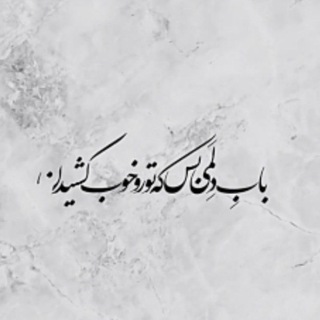 بابِ دلَمی بس که تو رو خوب کشیدن